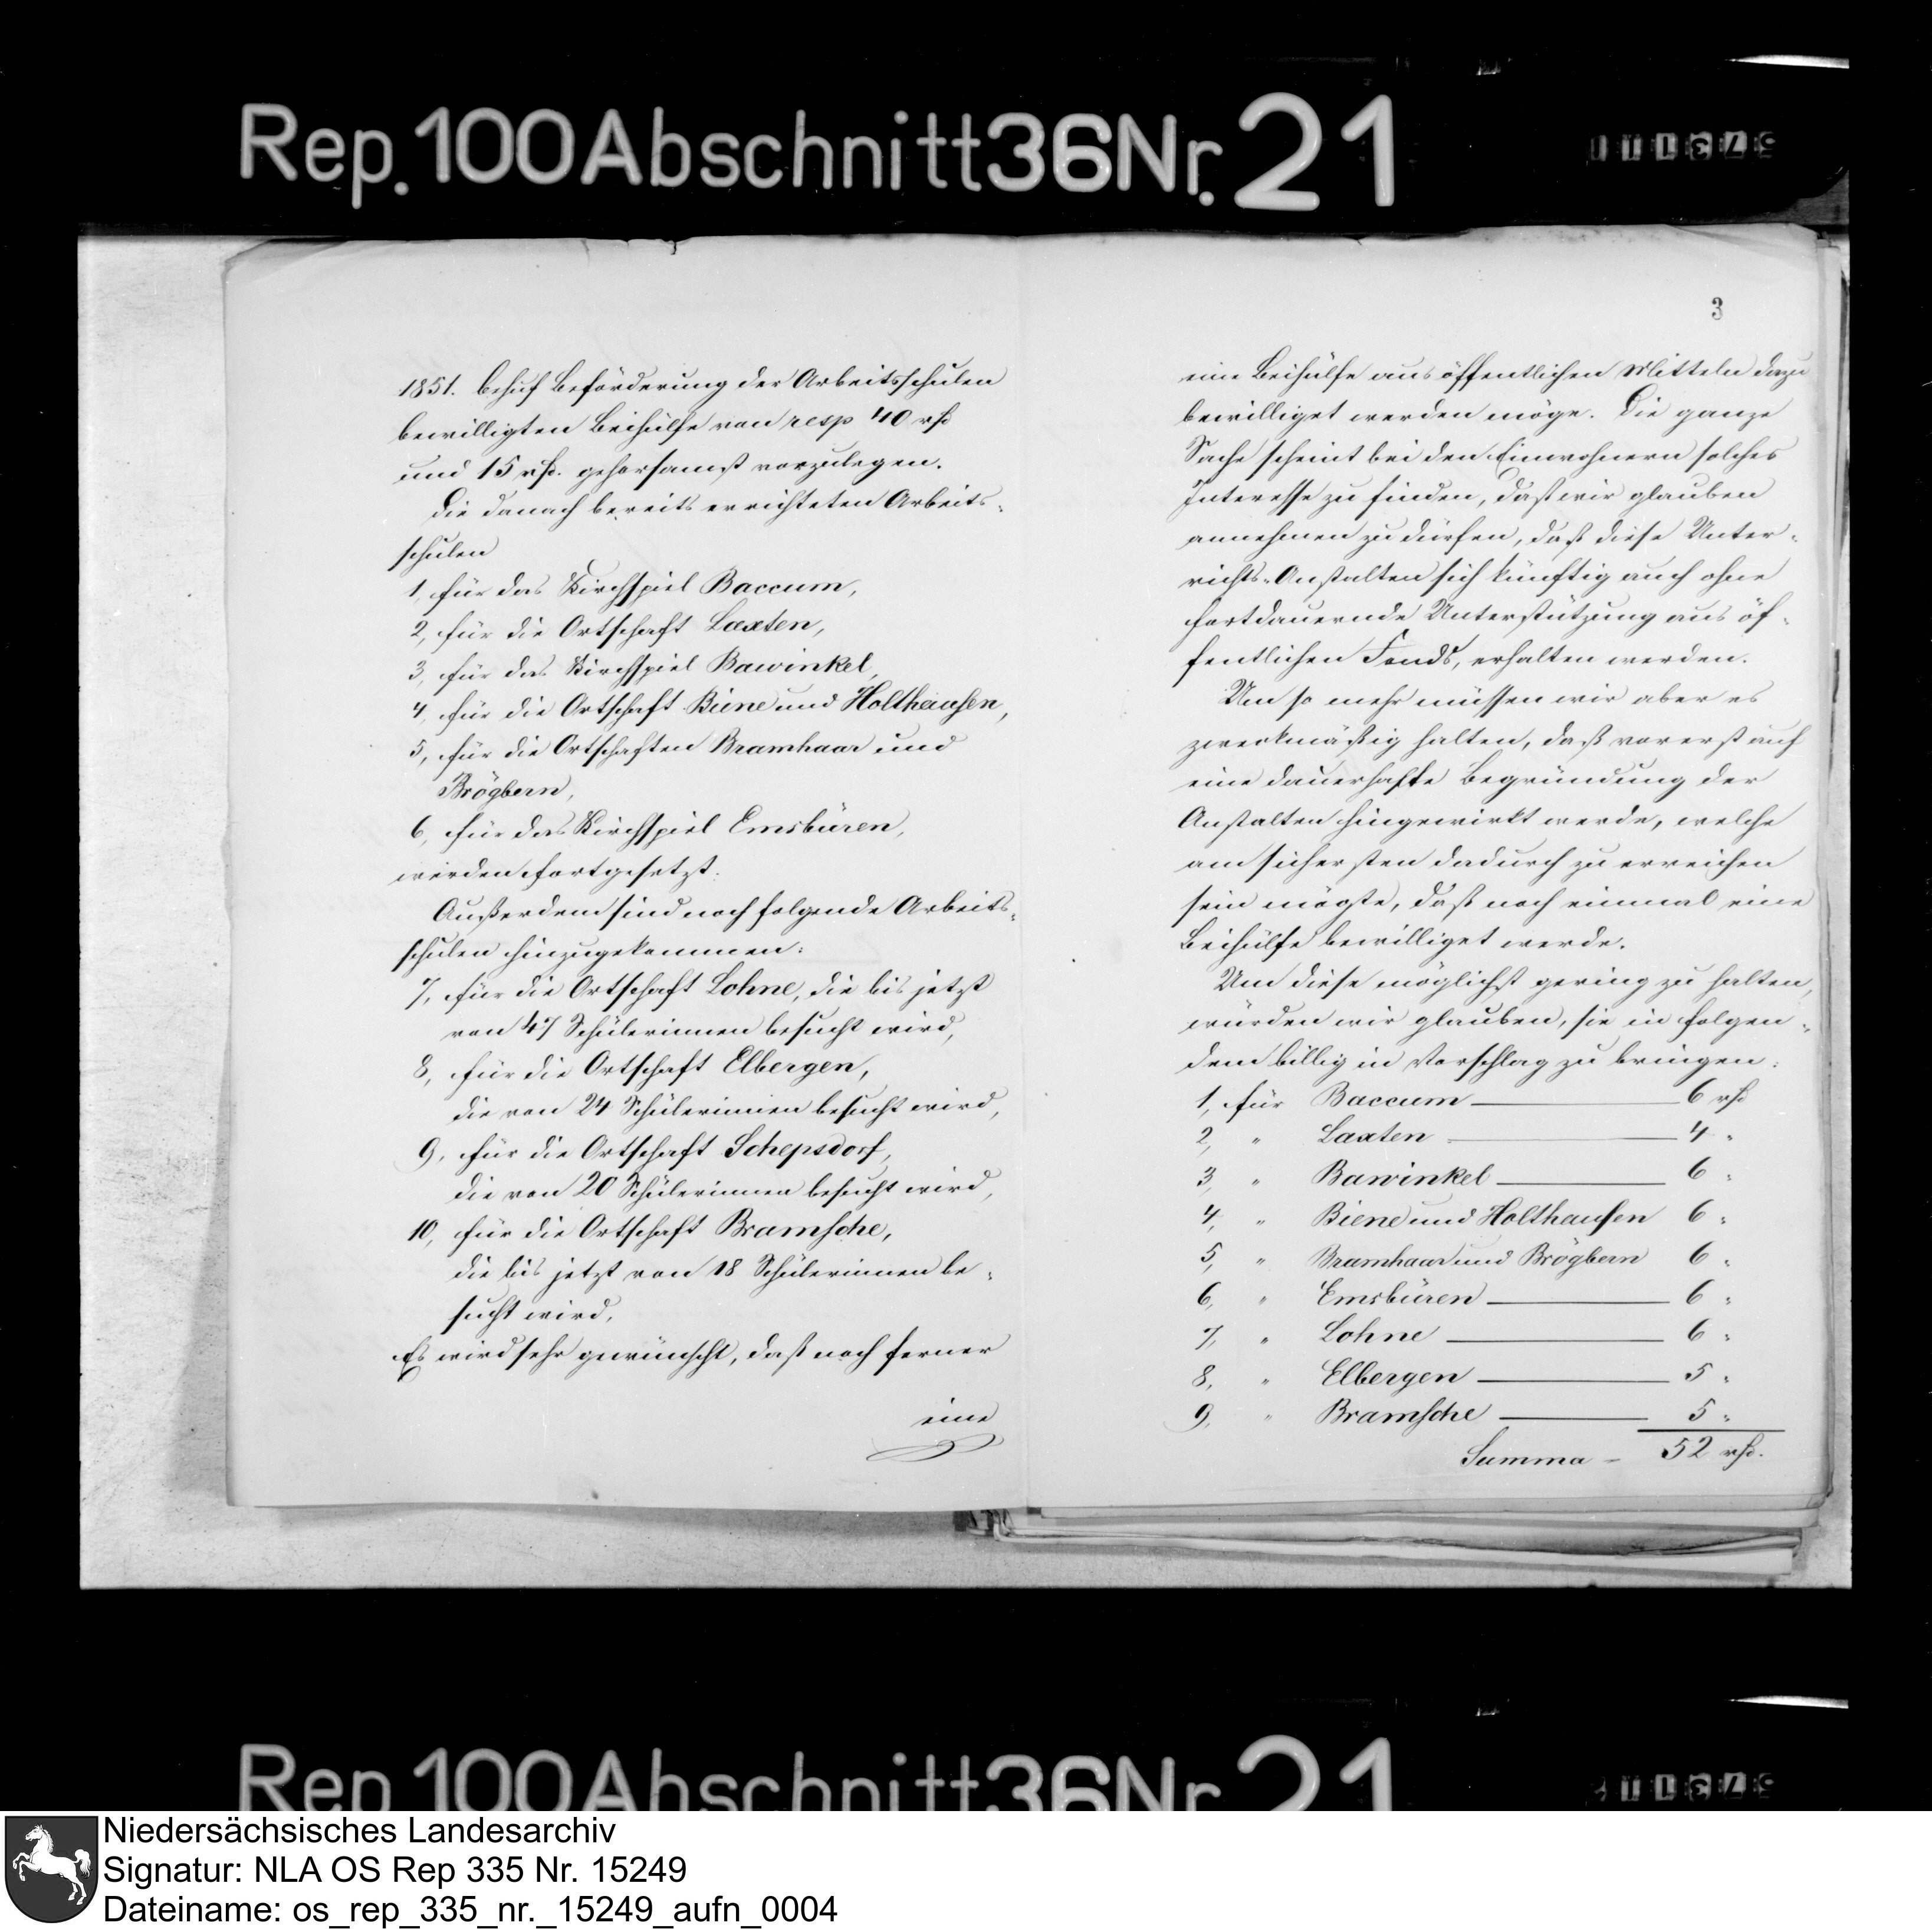 Rep. 100 Abschnitt 36 Nr. 21
1851. behuf Beförderung der Arbeitsschulen
bewilligten Beihülfe von resp 40 rß
und 15 rß. gehorsamst vorzulegen.
Die danach bereits errichteten Arbeits-
schulen
1, für das Kirchspiel Baccum,
2, für die Ortschaft Laxten,
3, für das Kirchspiel Bawinkel,
4, für die Ortschaft Biene und Holthausen,
5, für die Ortschaften Bramhaar und
Brögbern,
6, für das Kirchspiel Emsbüren,
werden fortgesetzt.
Außerdem sind noch folgende Arbeits-
schulen hinzugekommen:
7, für die Ortschaft Lohne, die bis jetzt
von 47 Schülerinnen besucht wird,
8, für die Ortschaft Elbergen,
die von 24 Schülerinnen besucht wird,
9, für die Ortschaft Schepsdorf,
die von 20 Schülerinnen besucht wird,
10, für die Ortschaft Bramsche,
die bis jetzt von 18 Schülerinnen be-
sucht wird.
Es wird sehr gewünscht, daß noch ferner
eine
3
eine Beihülfe aus öffentlichen Mitteln dazu
bewilliget werden möge. Die ganze
Sache scheint bei den Einwohnern solches
Interesse zu finden, daß wir glauben
annehmen zu dürfen, daß diese Unter-
richts-Anstalten sich künftig auch ohne
fortdauernde Unterstützung aus öf-
fentlichen Fonds, erhalten werden.
Um so mehr müssen wir aber es
zweckmäßig halten, daß vorerst auf
eine dauerhafte Begründung der
Anstalten hingewirkt werde, welche
am sichersten dadurch zu erreichen
sein mögte, daß noch einmal eine
Beihülfe bewilliget werde.
Um diese möglichst gering zu halten,
würden wir glauben, sie in folgen-
dem billig in Vorschlag zu bringen:
1, für Baccum 6 rß
2, " Laxten 4 "
3, " Bawinkel 6 "
4, " Biene und Holthausen 6 "
5, " Bramhaar und Brögbern 6 "
6, " Emsbüren 6 "
7, " Lohne 6 "
8, " Elbergen 5 "
9, " Bramsche 5 "
Summa - 52 rß.
Rep. 100 Abschnitt 36 Nr. 21
Niedersächsisches Landesarchiv
Signatur: NLA OS Rep 335 Nr. 15249
Dateiname: os_rep_335_nr._15249_aufn_0004